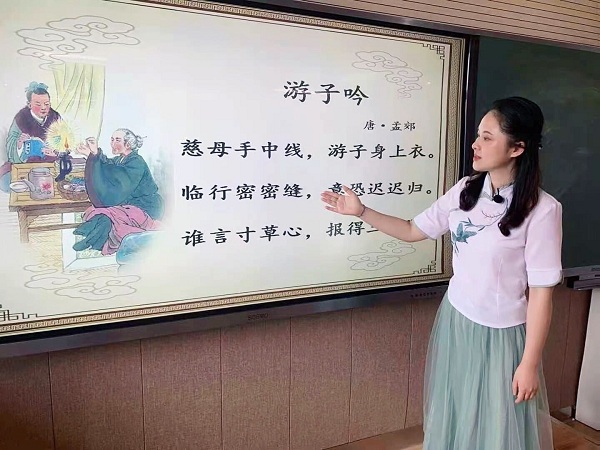 游子吟
唐·孟郊
慈母手中线，游子身上衣。
临行密密缝，意恐迟迟归。
谁言寸草心，报得